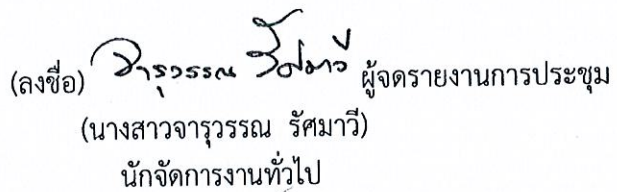 (ลงชื่อ) จารุวรรณ รัศมาวี ผู้จดรายงานการประชุม
(นางสาวจารุวรรณ รัศมาวี)
นักจัดการงานทั่วไป